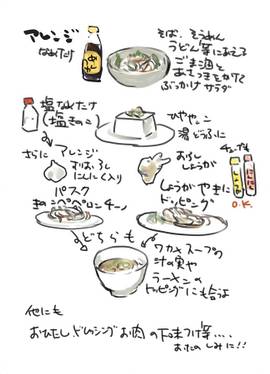 アレンジ
なめたけ
そば、そうめん
うどん等にあえて
ごま油と
あさつきをかけて
ぶっかけサラダ
塩なめたけ
塩きのこ
ひややっこ
湯どうふに
さらに アレンジ
すりおろし
にんにく入り
パスタ
きのこペペロンチーノ
おろし
しょうが
しょうがやきに
トッピング
チューブも
しょうが
にんにく
O.K.
どちらも
ワカメスープの
汁の実や
ラーメンの
トッピングにも合うよ
他にも
おひたし ドレッシング お肉の下味つけ等....
おたのしみに!!